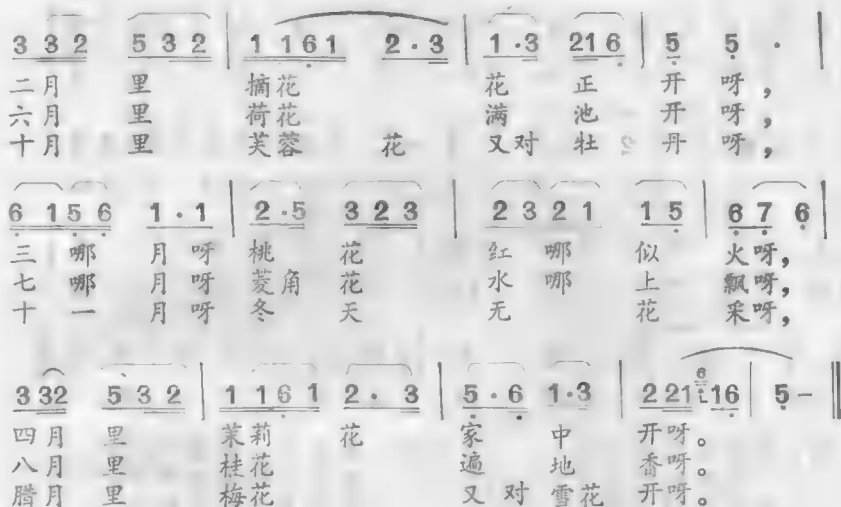 3 3 2 5 3 2 | 1 1 6 1 2 · 3 | 1 · 3 2 1 6 | 5 5 · |
二月 里 摘花 花 正 开 呀，
六月 里 荷花 满 池 开 呀，
十月 里 芙蓉 花 又对 牡 丹 呀，
6 1 5 6 1 · 1 | 2 · 5 3 2 3 | 2 3 2 1 1 5 | 6 7 6 |
三 哪 月 呀 桃 花 红 哪 似 火呀，
七 哪 月 呀 菱角 花 水 哪 上 飘呀，
十 一 月 呀 冬 天 无 花 采呀，
3 3 2 5 3 2 | 1 1 6 1 2 · 3 | 5 · 6 1 · 3 | 2 2 1 1 6 | 5 – ‖
四月 里 茉莉 花 家 中 开呀。
八月 里 桂花 遍 地 香呀。
腊月 里 梅花 又 对 雪花 开呀。